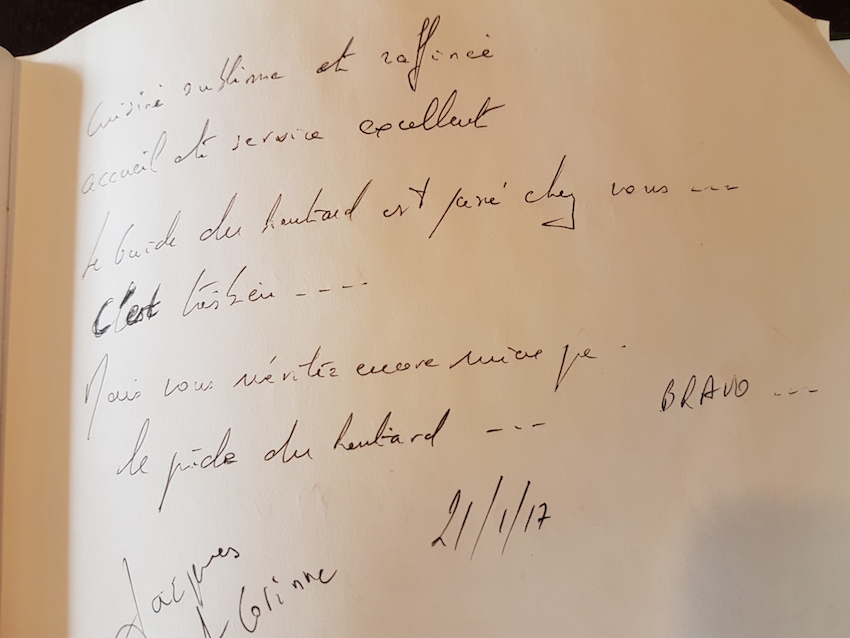 Cuisine sublime et raffinée
accueil et service excellent
Le Guide du Routard est passé chez vous ---
C'est très bien ----
Mais vous méritez encore mieux que
le guide du Routard ---
BRAVO ---
21/1/17
Jacques
et Corinne